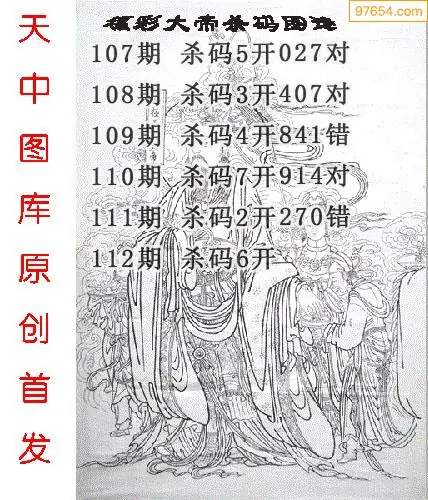 97654.com
福彩大帝杀码图迷
107期 杀码5开027对
108期 杀码3开407对
109期 杀码4开841错
110期 杀码7开914对
111期 杀码2开270错
112期 杀码6开
天中图库原创首发